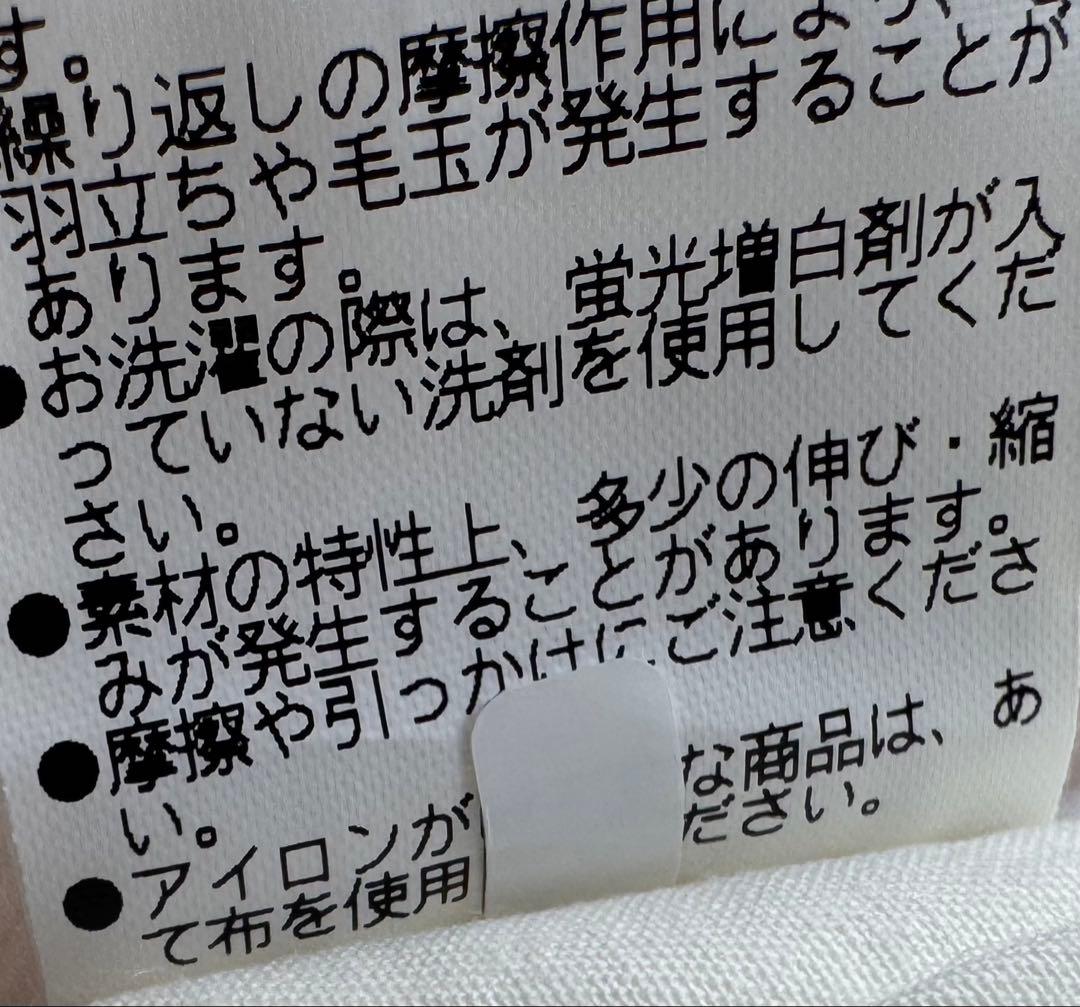 す。
繰り返しの摩擦作用によ
羽立ちや毛玉が発生することが
あります。
●お洗濯の際は、蛍光増白剤が入
っていない洗剤を使用してくだ
さい。
●素材の特性上、多少の伸び・縮
みが発生することがあります。
●摩擦や引っかけにご注意くださ
い。
●アイロンが な商品は、あ
て布を使用 ださい。